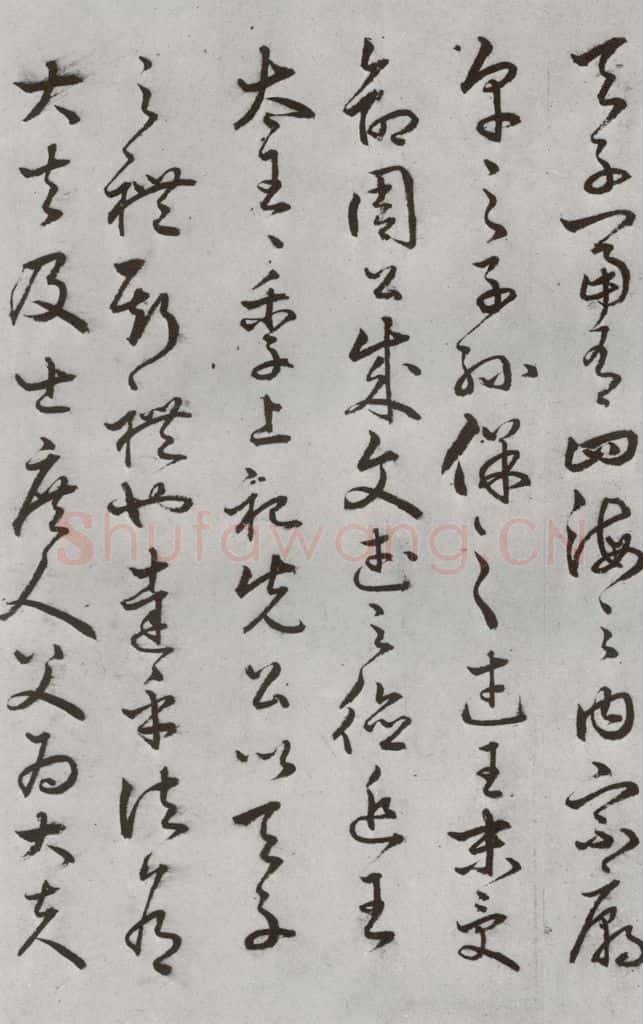 天子富有四海之内宗廟
享之子孫保之武王末受
命周公成文武之德追王
太王〻季上祀先公以天子
之禮斯禮也達乎諸侯
大夫及士庶人父為大夫
Shufawang.CN